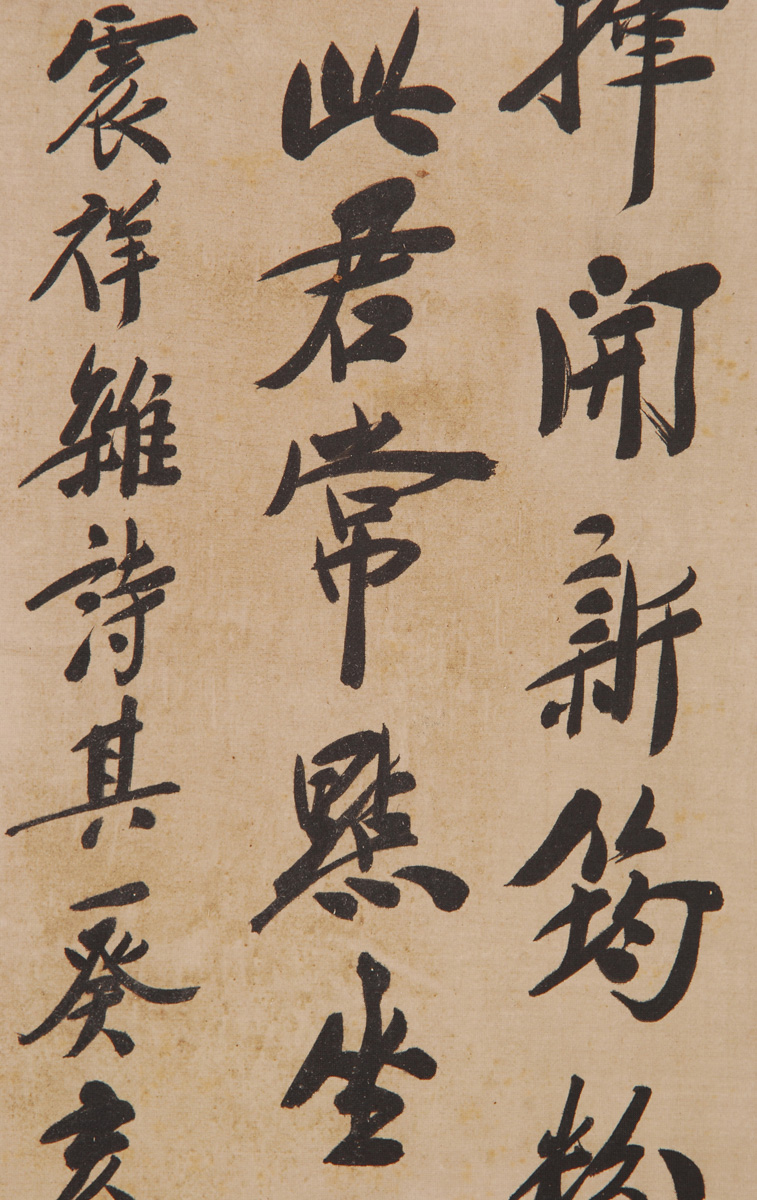 揮開新筠粉
此君常照坐
震祥雜詩其一癸亥